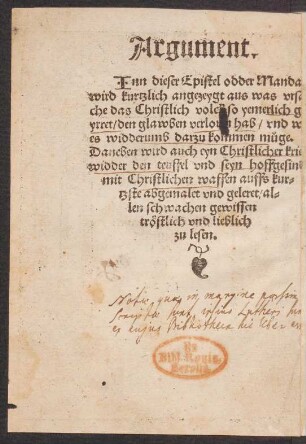 Argument.
Inn dieser Epistel odder Manda
wird kurtzlich angezeygt aus was vrsa
che das Christlich volck so yemerlich g
yrret/den glawben verloren hab/vnd w
es widderumb darzu kommen müge.
Daneben wird auch eyn Christlicher krie
widder den teuffel vnd seyn hoffgesin
mit Christlichen waffen auffs kur-
tzste abgemalet vnd geleret/al-
len schwachen gewissen
tröstlich vnd lieblich
zu lesen.
in margine passim
scripta sunt, Lutheri
Ex
Bibl. Regia
Berolin.